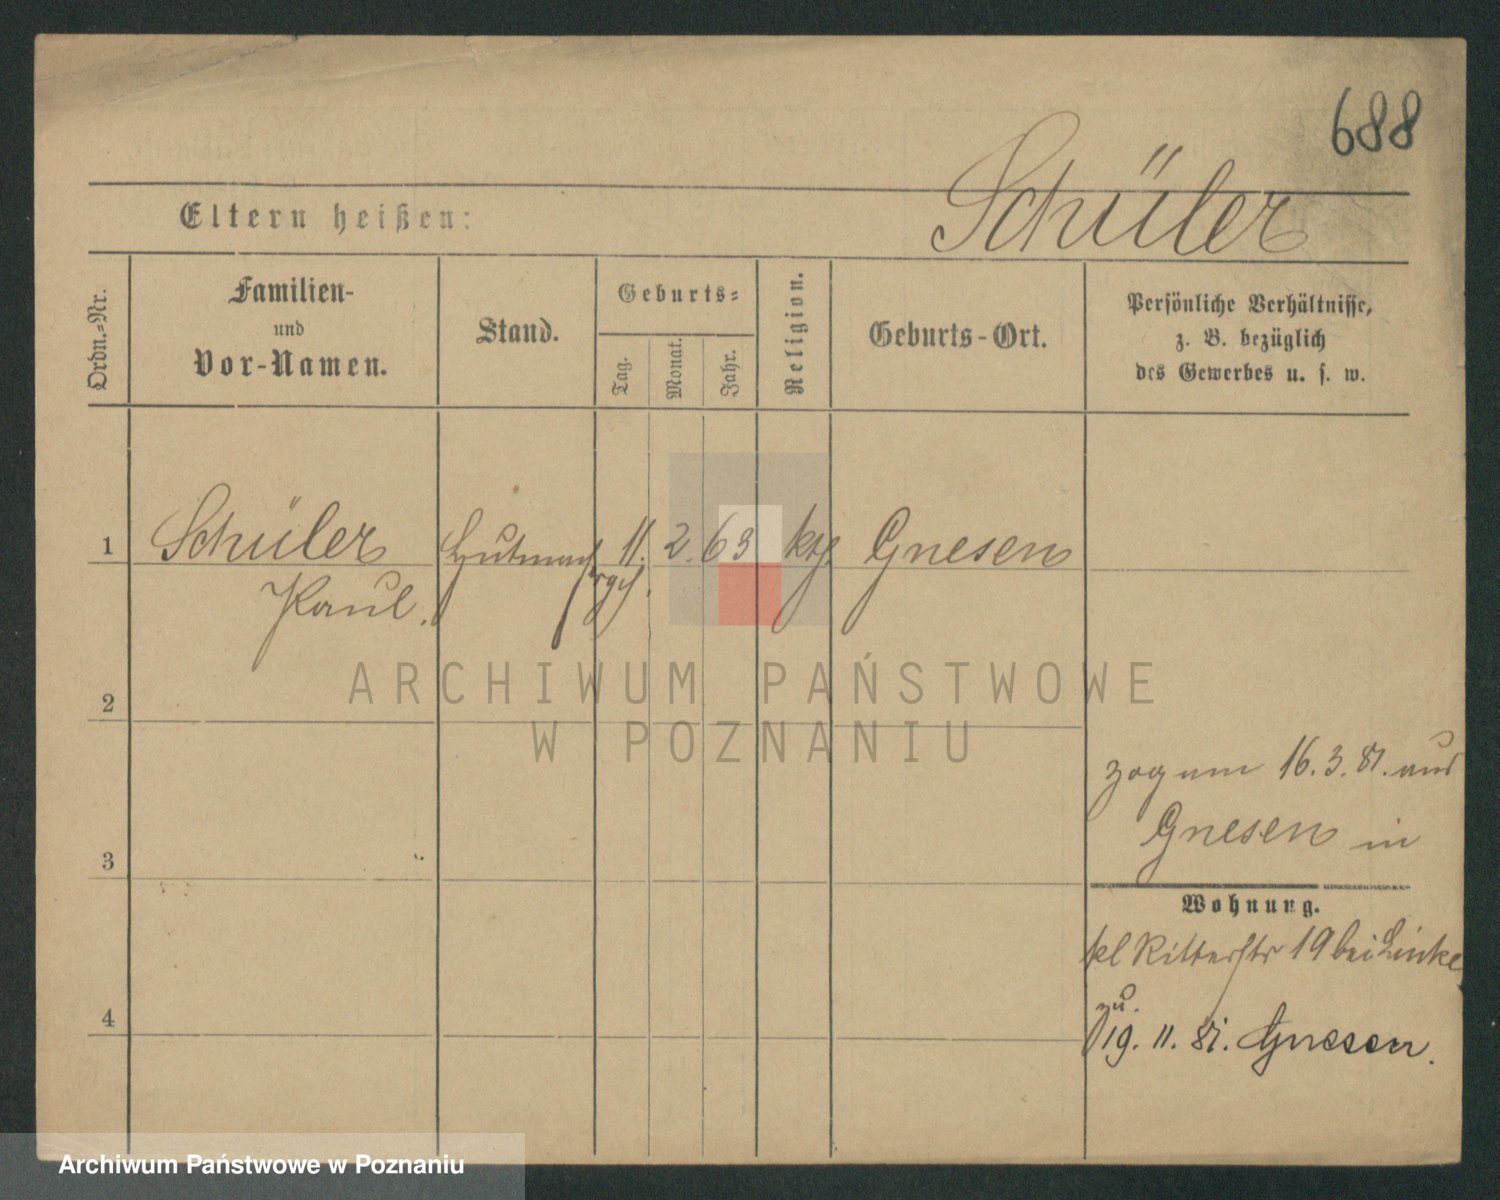 688
Schüler
Eltern heißen:
Ordn.-Nr.
Familien-
und
Vor-Namen.
Stand.
Geburts-
Tag.
Monat.
Jahr.
Religion.
Geburts-Ort.
Persönliche Verhältnisse,
z. B. bezüglich
des Gewerbes u. s. w.
1 Schüler Hutmach 11. 2. 63 kth. Gnesen
Paul. ergs.
ARCHIWUM PAŃSTWOWE
W POZNANIU
2
zog am 16.3.81. aus
Gnesen in
3
Wohnung.
kl Ritterstr 19 bei Linke
zu.
4
19. 11. 81. Gnesen.
Archiwum Państwowe w Poznaniu